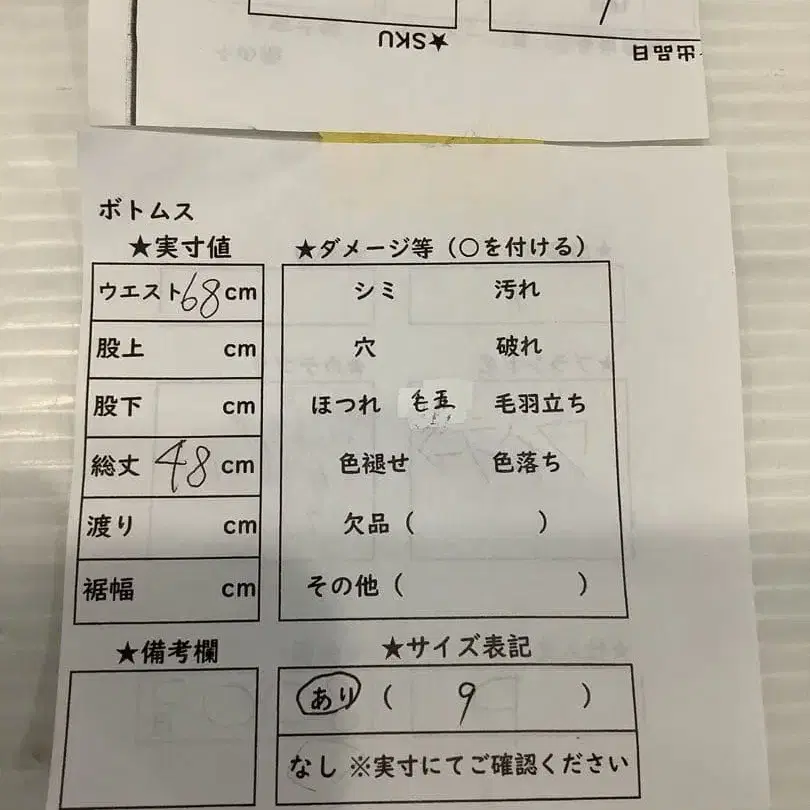 ★SKU
出品日
ボトムス
★実寸値
ウエスト 68 cm
股上 cm
股下 cm
総丈 48 cm
渡り cm
裾幅 cm
★ダメージ等（○を付ける）
シミ 汚れ
穴 破れ
ほつれ 毛玉 毛羽立ち
色褪せ 色落ち
欠品（ ）
その他（ ）
★備考欄
★サイズ表記
あり（ 9 ）
なし ※実寸にてご確認ください